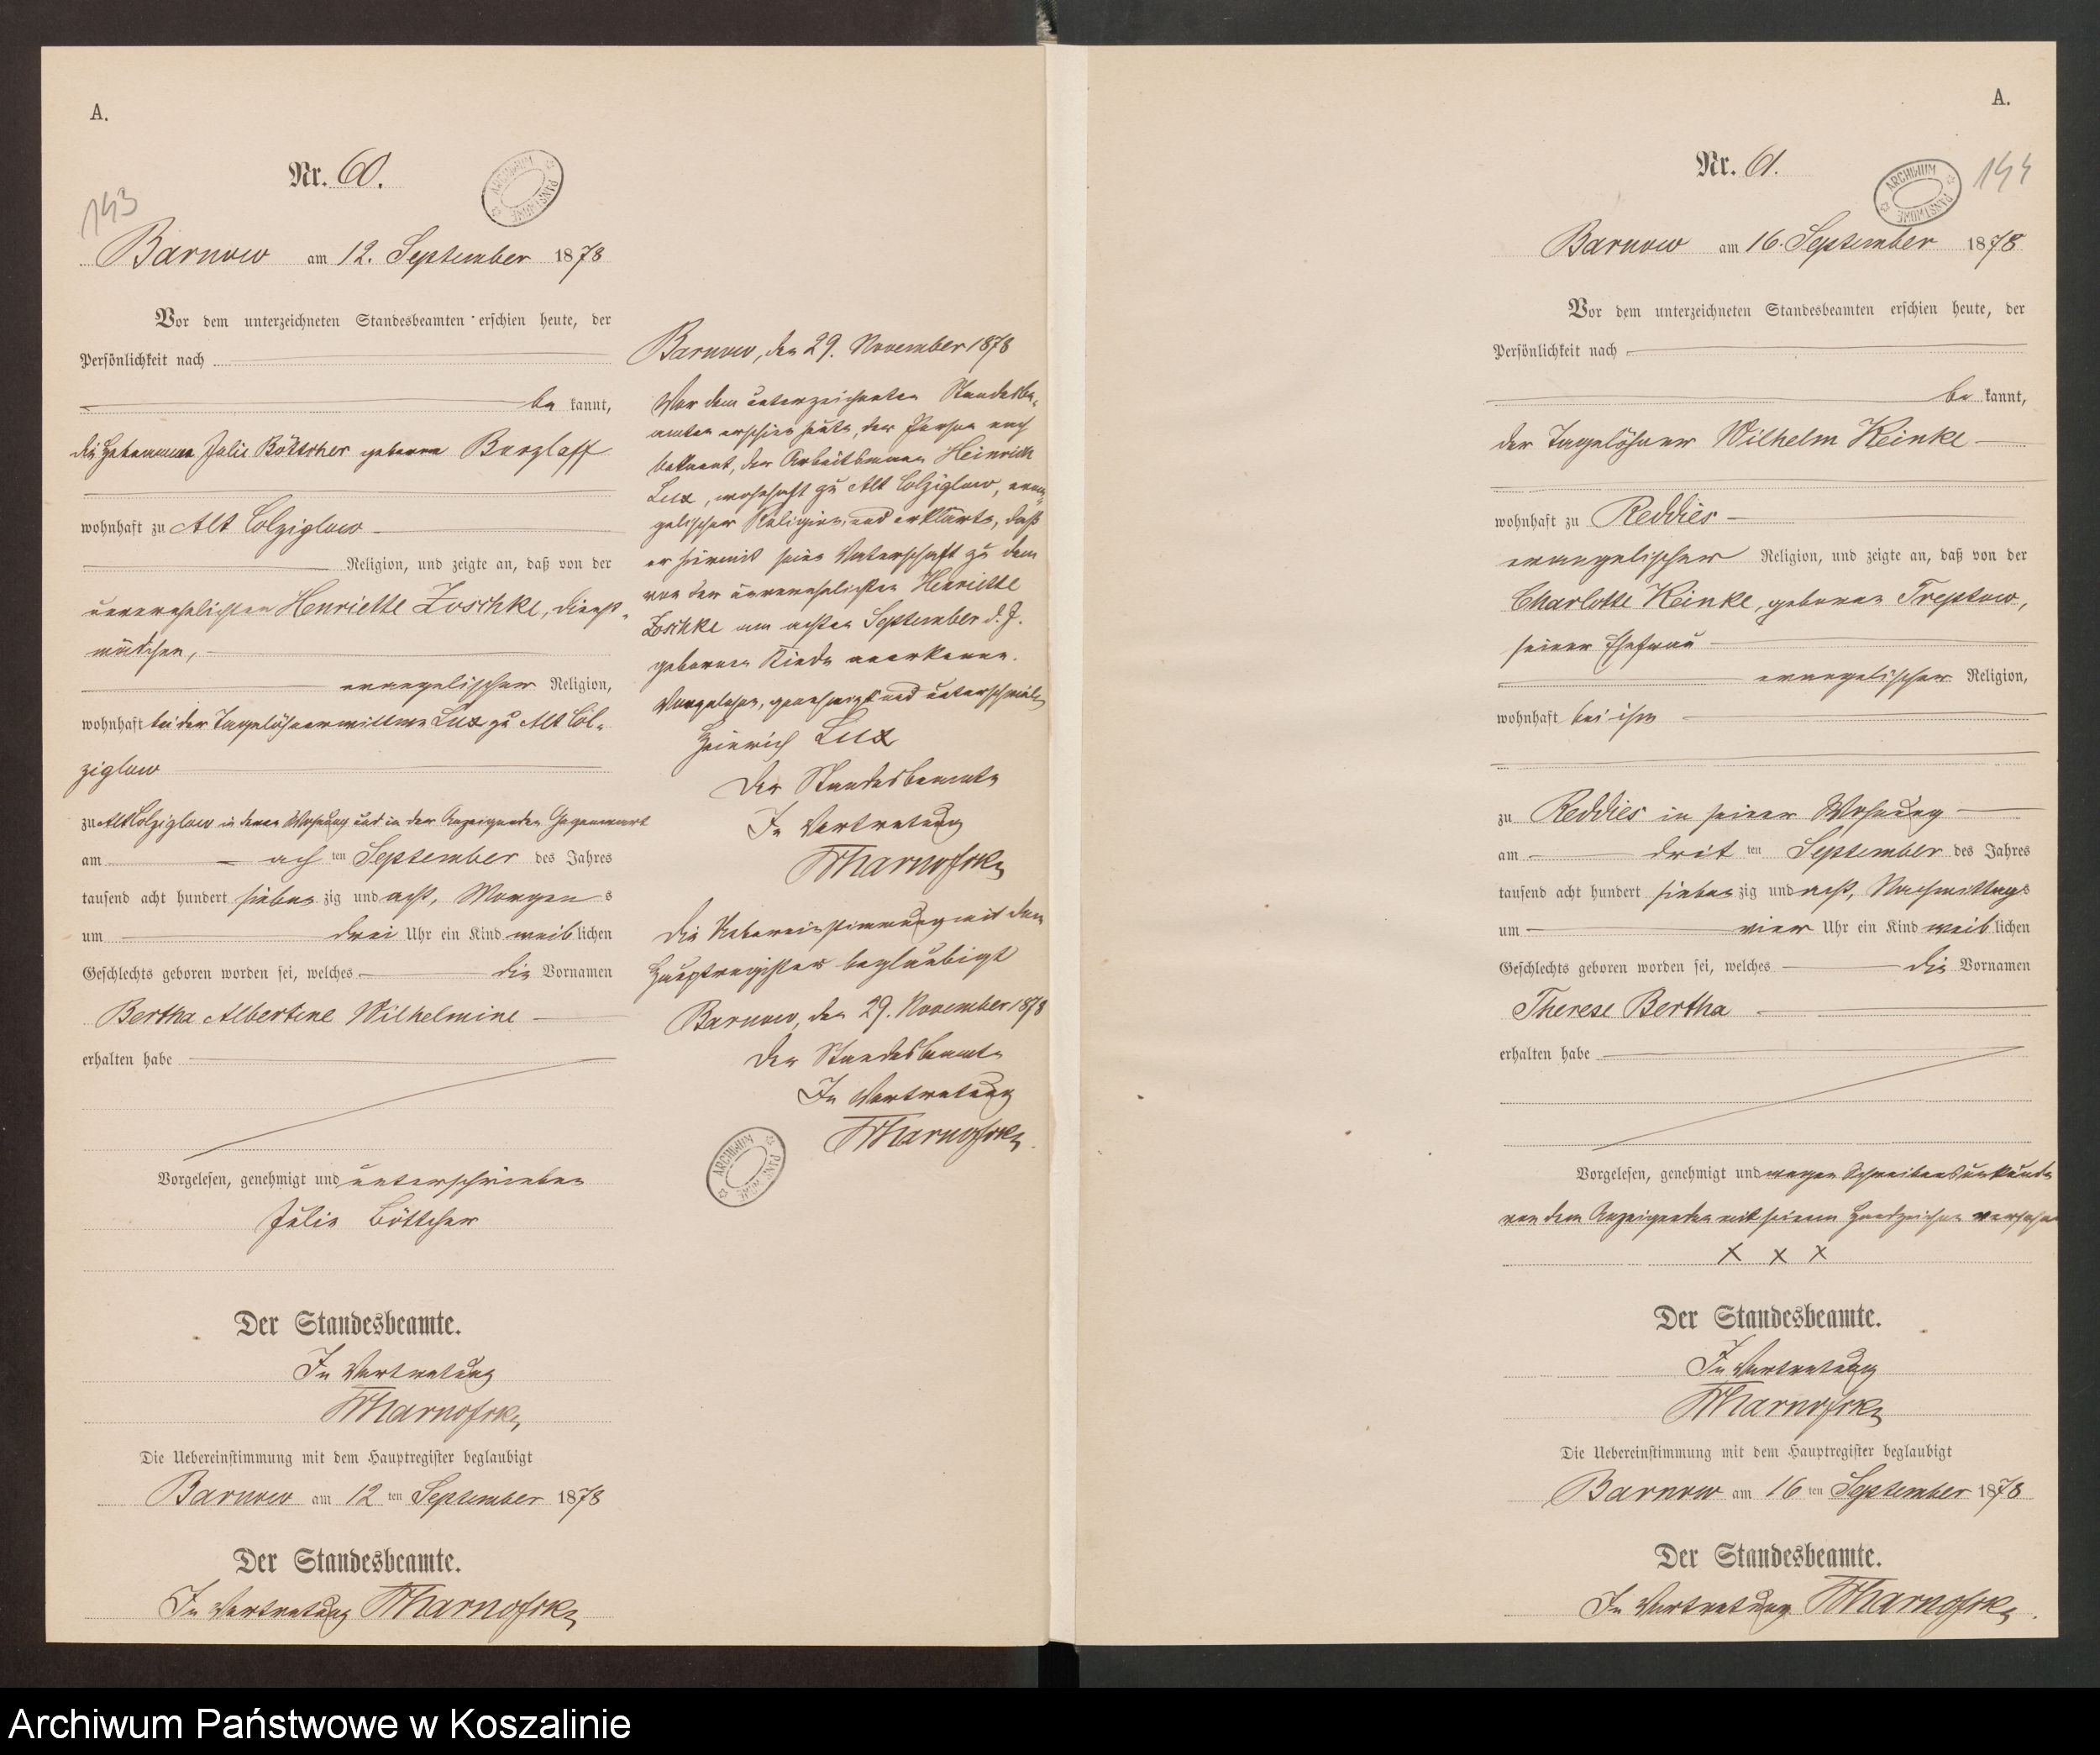 A.
Nr. 60.
ARCHIWUM PAŃSTWOWE
143
Barnow am 12. September 1878
Vor dem unterzeichneten Standesbeamten erschien heute, der
Persönlichkeit nach
be kannt,
die Hebamme Julie Böttcher geborene Burzlaff
wohnhaft zu Alt Colziglow
Religion, und zeigte an, daß von der
unverehelichten Henriette Zoschke, Dienst-
mädchen,
evangelischer Religion,
wohnhaft bei der Tagelöhnerwittwe Lux zu Alt Col-
ziglow
zu Alt Colziglow in deren Wohnung und in der Anzeigenden Gegenwart
am ach ten September des Jahres
tausend acht hundert sieben zig und acht, Morgen s
um drei Uhr ein Kind weib lichen
Geschlechts geboren worden sei, welches die Vornamen
Bertha Albertine Wilhelmine
erhalten habe
Vorgelesen, genehmigt und unterschrieben
Julie Böttcher
Der Standesbeamte.
In Vertretung
Die Uebereinstimmung mit dem Hauptregister beglaubigt
Barnow am 12 ten September 1878
Der Standesbeamte.
In Vertretung
Barnow, den 29. November 1878
Vor dem unterzeichneten Standesbe-
amten erschien heute, der Person nach
bekannt, der Arbeitsmann Heinrich
Lux, wohnhaft zu Alt Colziglow, evan-
gelischer Religion und erklärte, daß
er hiermit seine Vaterschaft zu dem
von der unverehelichten Henriette
Zoschke am achten September d. J.
geborenen Kinde anerkenne.
Vorgelesen, genehmigt und unterschrieben
Heinrich Lux
Der Standesbeamte
In Vertretung
Die Uebereinstimmung mit dem
Hauptregister beglaubigt
Barnow, den 29. November 1878
Der Standesbeamte
In Vertretung
ARCHIWUM PAŃSTWOWE
A.
Nr. 61.
ARCHIWUM PAŃSTWOWE
144
Barnow am 16. September 1878
Vor dem unterzeichneten Standesbeamten erschien heute, der
Persönlichkeit nach
be kannt,
der Tagelöhner Wilhelm Keinke
wohnhaft zu Reddies
evangelischer Religion, und zeigte an, daß von der
Charlotte Keinke, geborenen Treptow,
seiner Ehefrau
evangelischer Religion,
wohnhaft bei ihm
zu Reddies in seiner Wohnung
am drit ten September des Jahres
tausend acht hundert sieben zig und acht, Nachmittags
um vier Uhr ein Kind weib lichen
Geschlechts geboren worden sei, welches die Vornamen
Therese Bertha
erhalten habe
Vorgelesen, genehmigt und wegen Schreibensunkunde
von dem Anzeigenden mit seinem Handzeichen versehen
x x x
Der Standesbeamte.
In Vertretung
Die Uebereinstimmung mit dem Hauptregister beglaubigt
Barnow am 16 ten September 1878
Der Standesbeamte.
In Vertretung
Archiwum Państwowe w Koszalinie